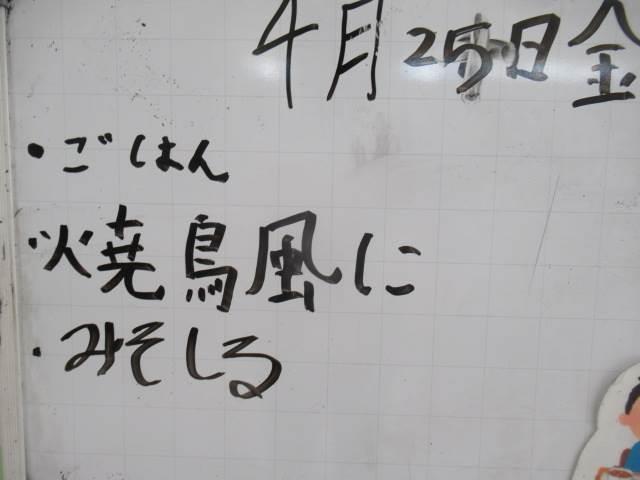 4月25日金
・ごはん
・焼鳥風に
・みそしる